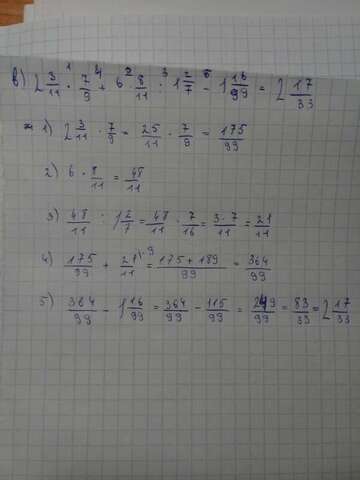 в) 2 3/11 · 7/9 + 6 · 8/11 : 1 2/7 - 1 16/99 = 2 17/33
1) 2 3/11 · 7/9 = 25/11 · 7/9 = 175/99
2) 6 · 8/11 = 48/11
3) 48/11 : 1 2/7 = 48/11 · 7/16 = 3·7/11 = 21/11
4) 175/99 + 21/11 \·9 = 175+189/99 = 364/99
5) 364/99 - 1 16/99 = 364/99 - 115/99 = 249/99 = 83/33 = 2 17/33